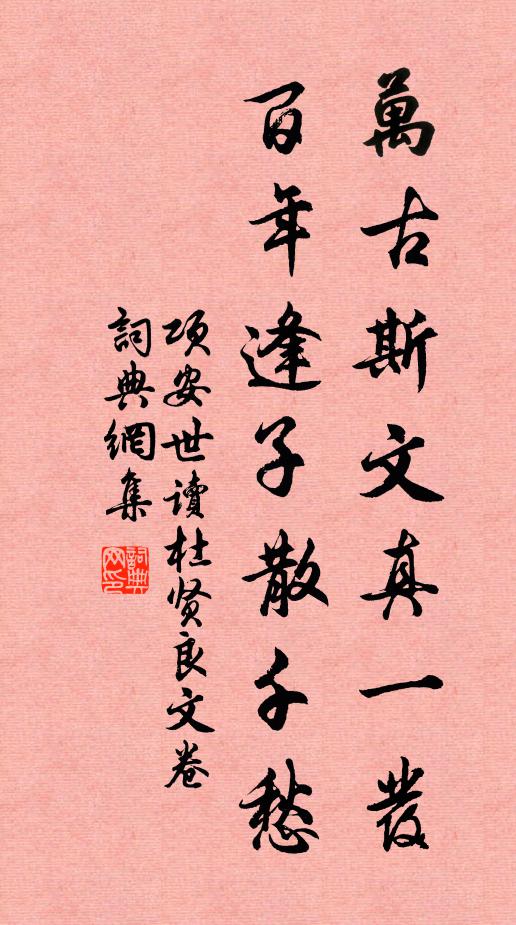 萬古斯文真一發
百年逢子散千愁
項安世讀杜賢良文卷
詞典網集
詞典網印